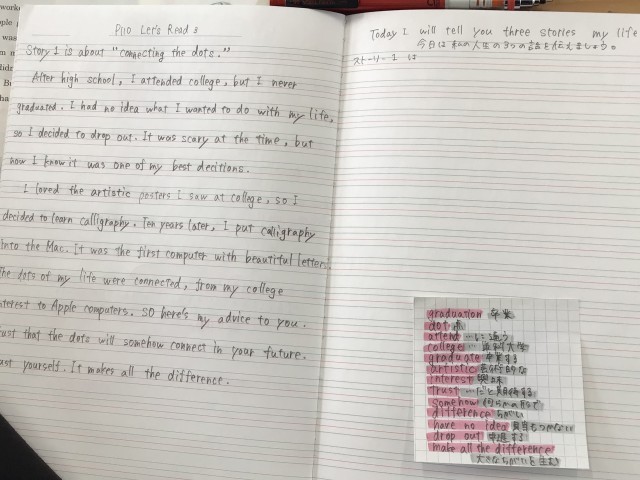 P110 Let's Read 3
Story 1 is about "connecting the dots."
After high school, I attended college, but I never
graduated. I had no idea what I wanted to do with my life,
so I decided to drop out. It was scary at the time, but
now I know it was one of my best decitions.
I loved the artistic posters I saw at college, so I
decided to learn calligraphy. Ten years later, I put calligraphy
into the Mac. It was the first computer with beautiful letters.
The dots of my life were connected, from my college
interest to Apple computers. SO here's my advice to you.
that the dots will somehow connect in your future.
yourself. It makes all the difference.
Today I will tell you three stories my life
今日は私の人生の3つの話を伝えましょう。
ストーリー 1 は
graduation 卒業
dot 点
attend …に通う
college 大学
graduate 卒業する
artistic 芸術的な
interest 興味
trust …だと期待する
somehow 何らかの形で
difference ちがい
have no idea 見当もつかない
drop out 中退する
make all the difference
大きなちがいを生む